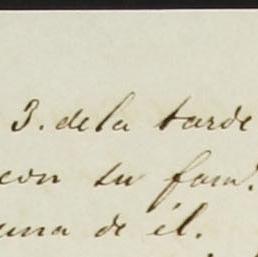 3. de la tarde
con su fam.
una de él.